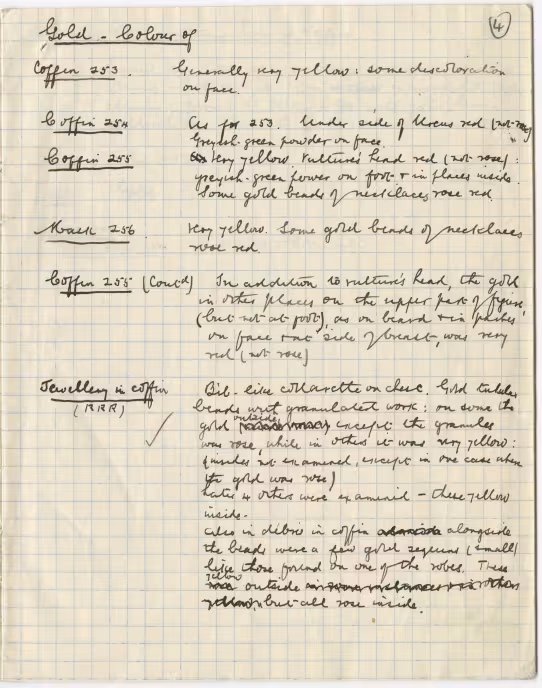 4
Gold - Colour of
Coffin 253. Generally very yellow: some discoloration
on face.
Coffin 254 As for 253. Under side of Uraeus red (not rose)
Greyish-green powder on face.
Coffin 255 Very yellow. Vulture's head red (not rose):
greyish-green power on foot & in places inside.
Some gold beads of necklaces rose red.
Mask 256 Very yellow. Some gold beads of necklaces
rose red.
Coffin 255 (Contd) In addition to vulture's head, the gold
in other places on the upper part of figure,
(but not at foot), as on beard & in patches
on face & at side of breast, was very
red (not rose)
Jewellery in coffin Bib-like collarette on chest. Gold tubular
(RRR) beads with granulated work: on some the
gold outside except the granules
was rose, while in others it was very yellow:
(insides not examined, except in one case where
the gold was rose)
Later 4 others were examined - these yellow
inside.
Also in debris in coffin alongside
the beads were a few gold sequins (small)
like those found on one of the robes. These
yellow outside
but all rose inside.